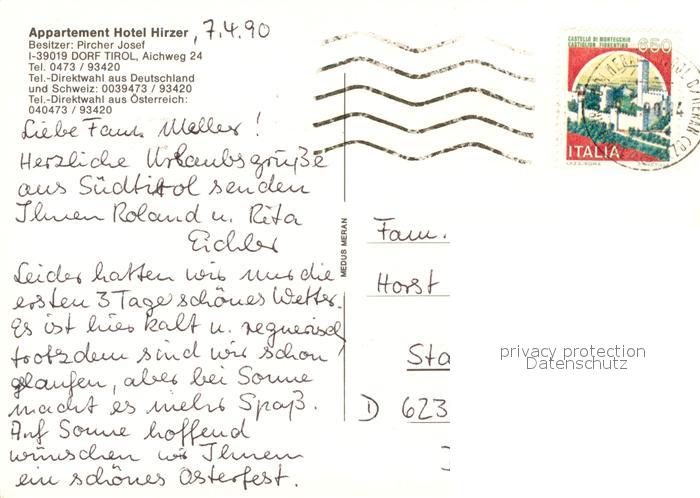 Appartement Hotel Hirzer , 7.4.90
Besitzer: Pircher Josef
I-39019 DORF TIROL, Aichweg 24
Tel. 0473 / 93420
Tel.-Direktwahl aus Deutschland
und Schweiz: 0039473 / 93420
Tel.-Direktwahl aus Österreich:
040473 / 93420
Liebe Fam. Meller!
Herzliche Urlaubsgrüße
aus Südtirol senden
Ihnen Roland u. Rita
Eichler
Leider hatten wir nur die
ersten 3 Tage schönes Wetter.
Es ist hier kalt u. regnerisch
trotzdem sind wir schon
gelaufen, aber bei Sonne
macht es mehr Spaß.
Auf Sonne hoffend
wünschen wir Ihnen
ein schönes Osterfest.
MEDUS MERAN
CASTELLO DI MONTECCHIO
CASTIGLION FIORENTINO
650
ITALIA
Fam.
Horst
Sta
D 623
privacy protection
Datenschutz